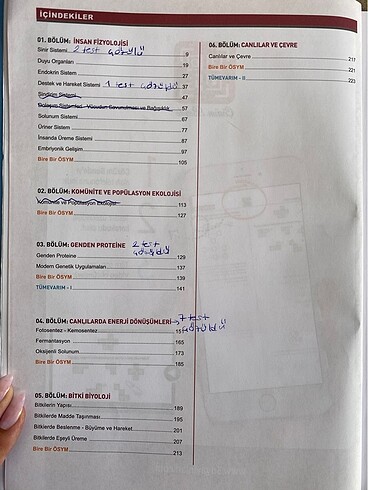 İÇİNDEKİLER
01. BÖLÜM: İNSAN FİZYOLOJİSİ
Sinir Sistemi 2 test çözüldü 9
Duyu Organları 19
Endokrin Sistem 27
Destek ve Hareket Sistemi 1 test çözüldü 37
Sindirim Sistemi 47
Dolaşım Sistemleri - Vücudun Savunulması ve Bağışıklık 57
Solunum Sistemi 67
Üriner Sistem 77
İnsanda Üreme Sistemi 87
Embriyonik Gelişim 97
Bire Bir ÖSYM 105
02. BÖLÜM: KOMÜNİTE ve POPÜLASYON EKOLOJİSİ
Komünite ve Popülasyon Ekolojisi 113
Bire Bir ÖSYM 127
03. BÖLÜM: GENDEN PROTEİNE 2 test çözüldü
Genden Proteine 129
Modern Genetik Uygulamaları 137
Bire Bir ÖSYM 139
TÜMEVARIM - I 141
04. BÖLÜM: CANLILARDA ENERJİ DÖNÜŞÜMLERİ → 7 test çözüldü
Fotosentez - Kemosentez 151
Fermantasyon 165
Oksijenli Solunum 173
Bire Bir ÖSYM 185
05. BÖLÜM: BİTKİ BİYOLOJİ
Bitkilerin Yapısı 189
Bitkilerde Madde Taşınması 195
Bitkilerde Beslenme - Büyüme ve Hareket 201
Bitkilerde Eşeyli Üreme 207
Bire Bir ÖSYM 213
06. BÖLÜM: CANLILAR VE ÇEVRE
Canlılar ve Çevre 217
Bire Bir ÖSYM 221
TÜMEVARIM - II 223